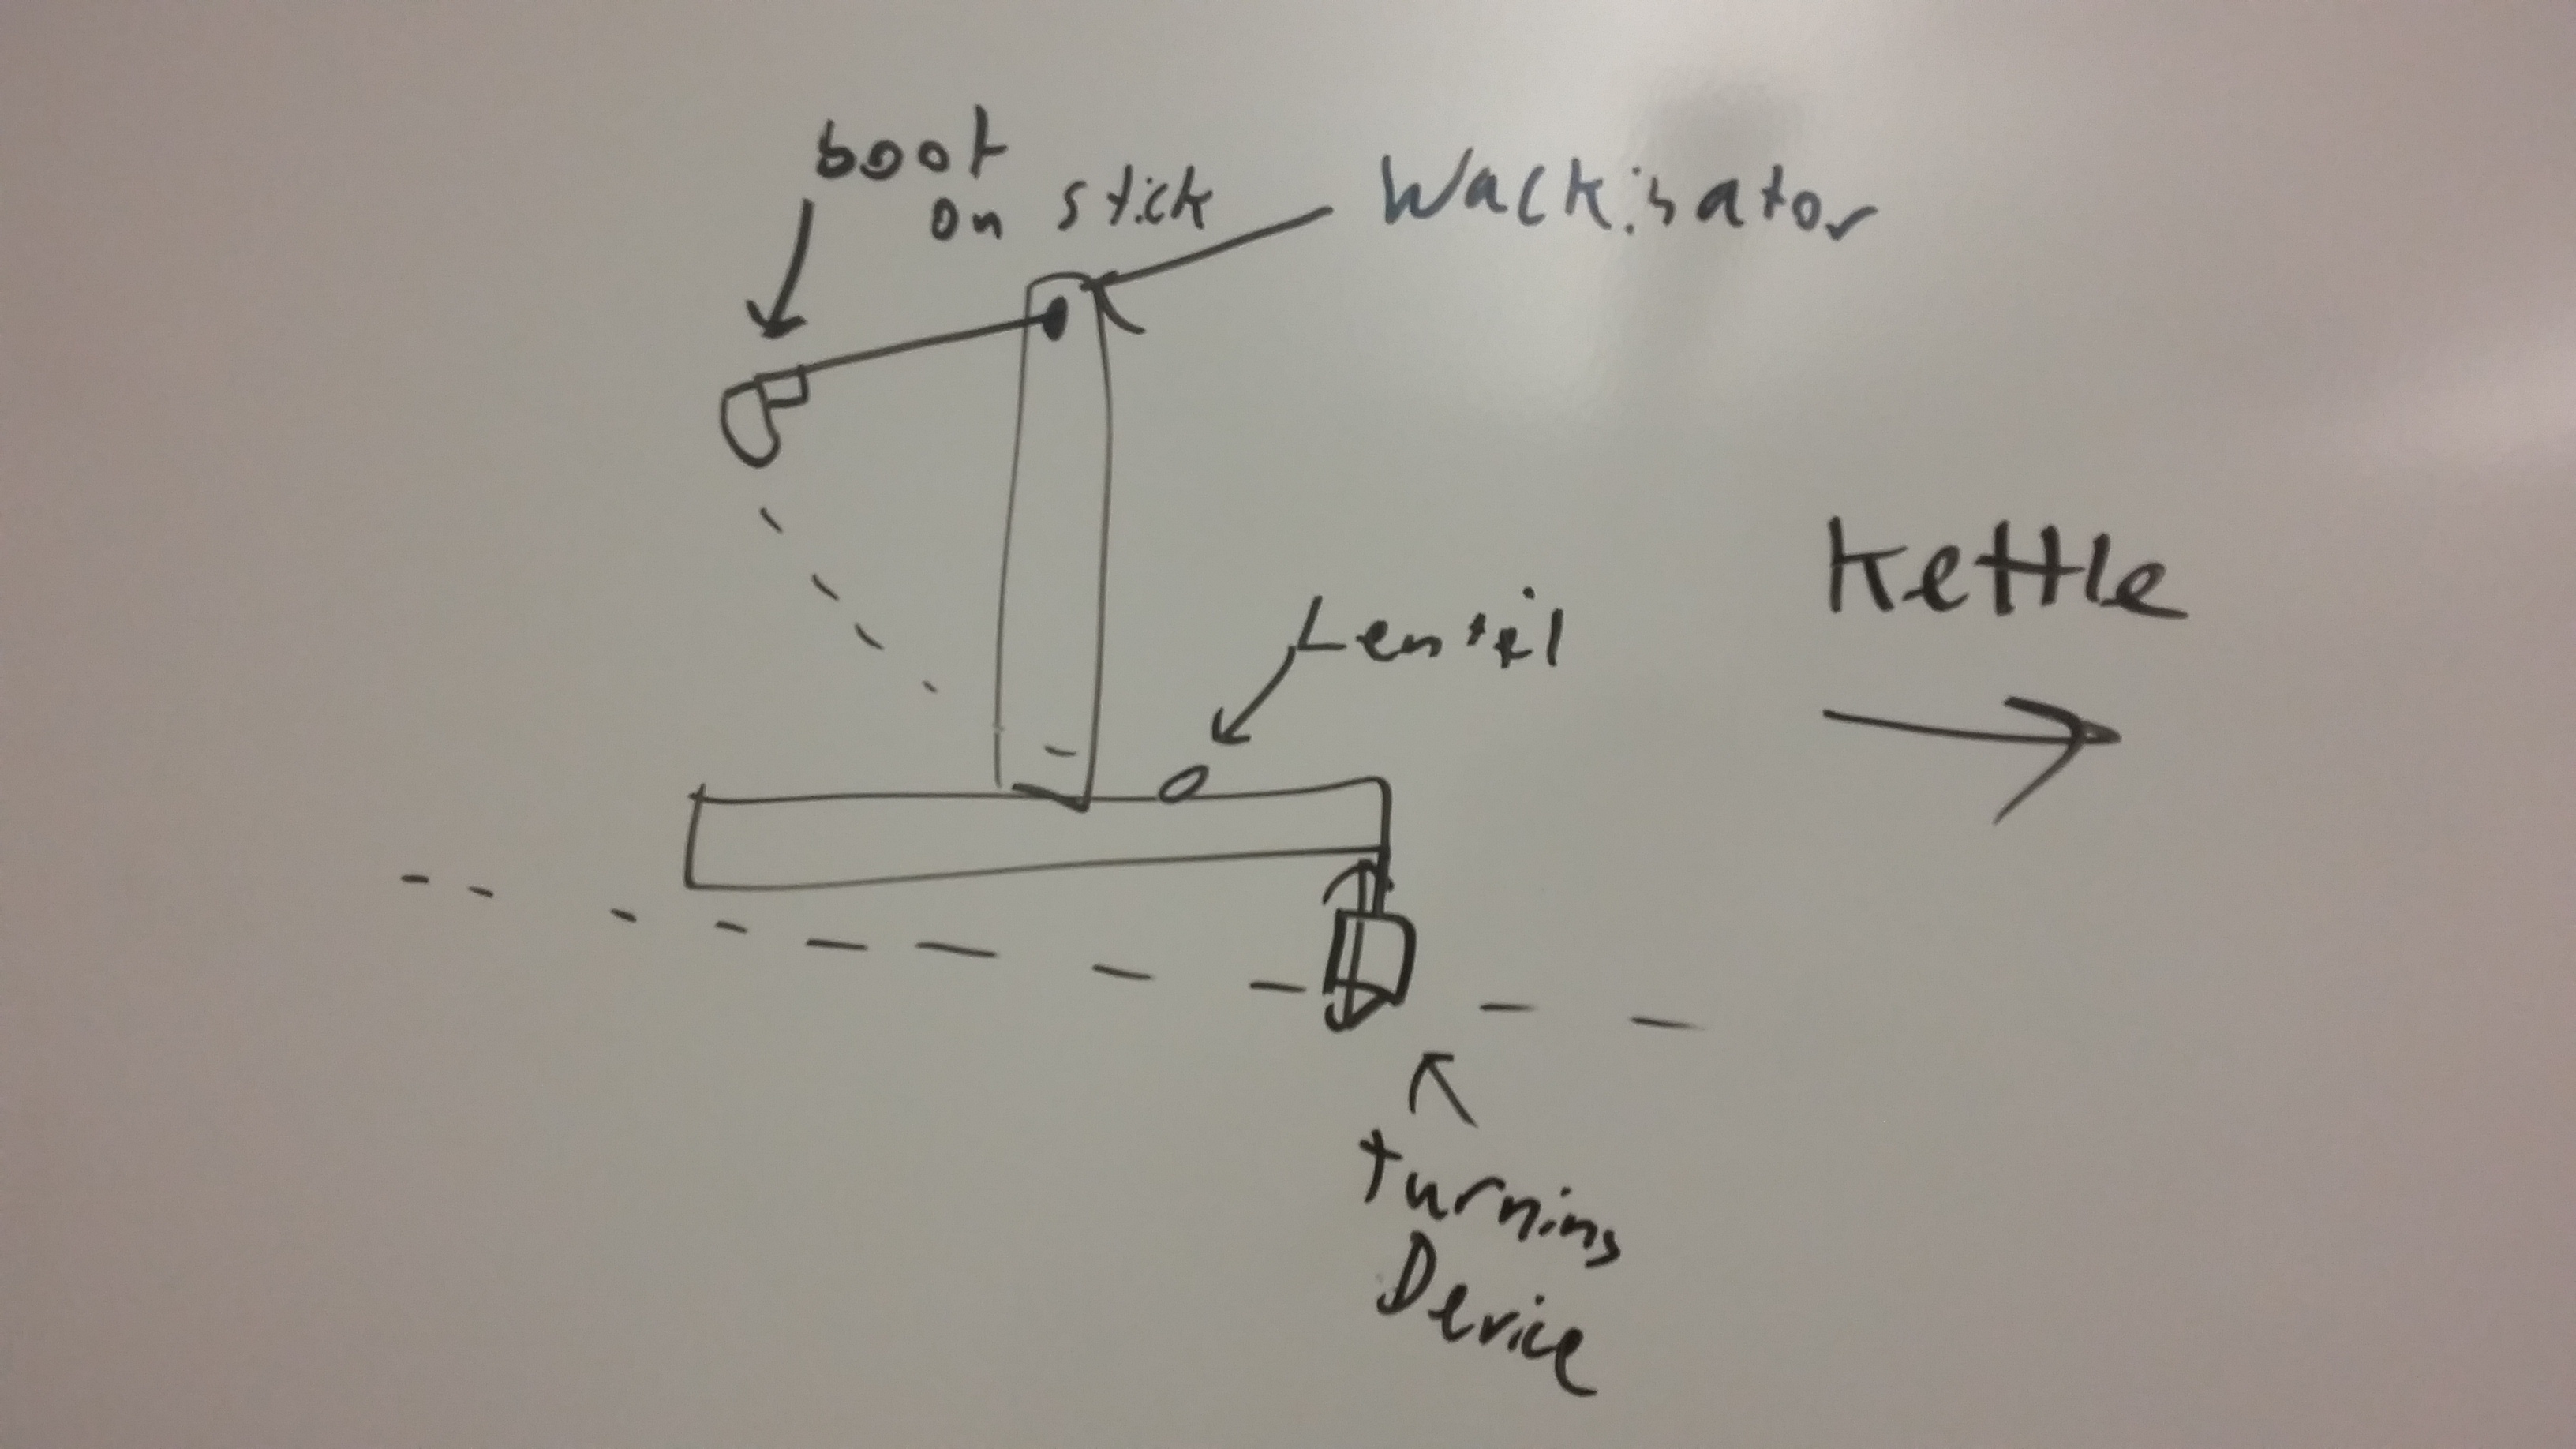 boot
on stick
Wackisator
Lentil
Kettle
turning
Device